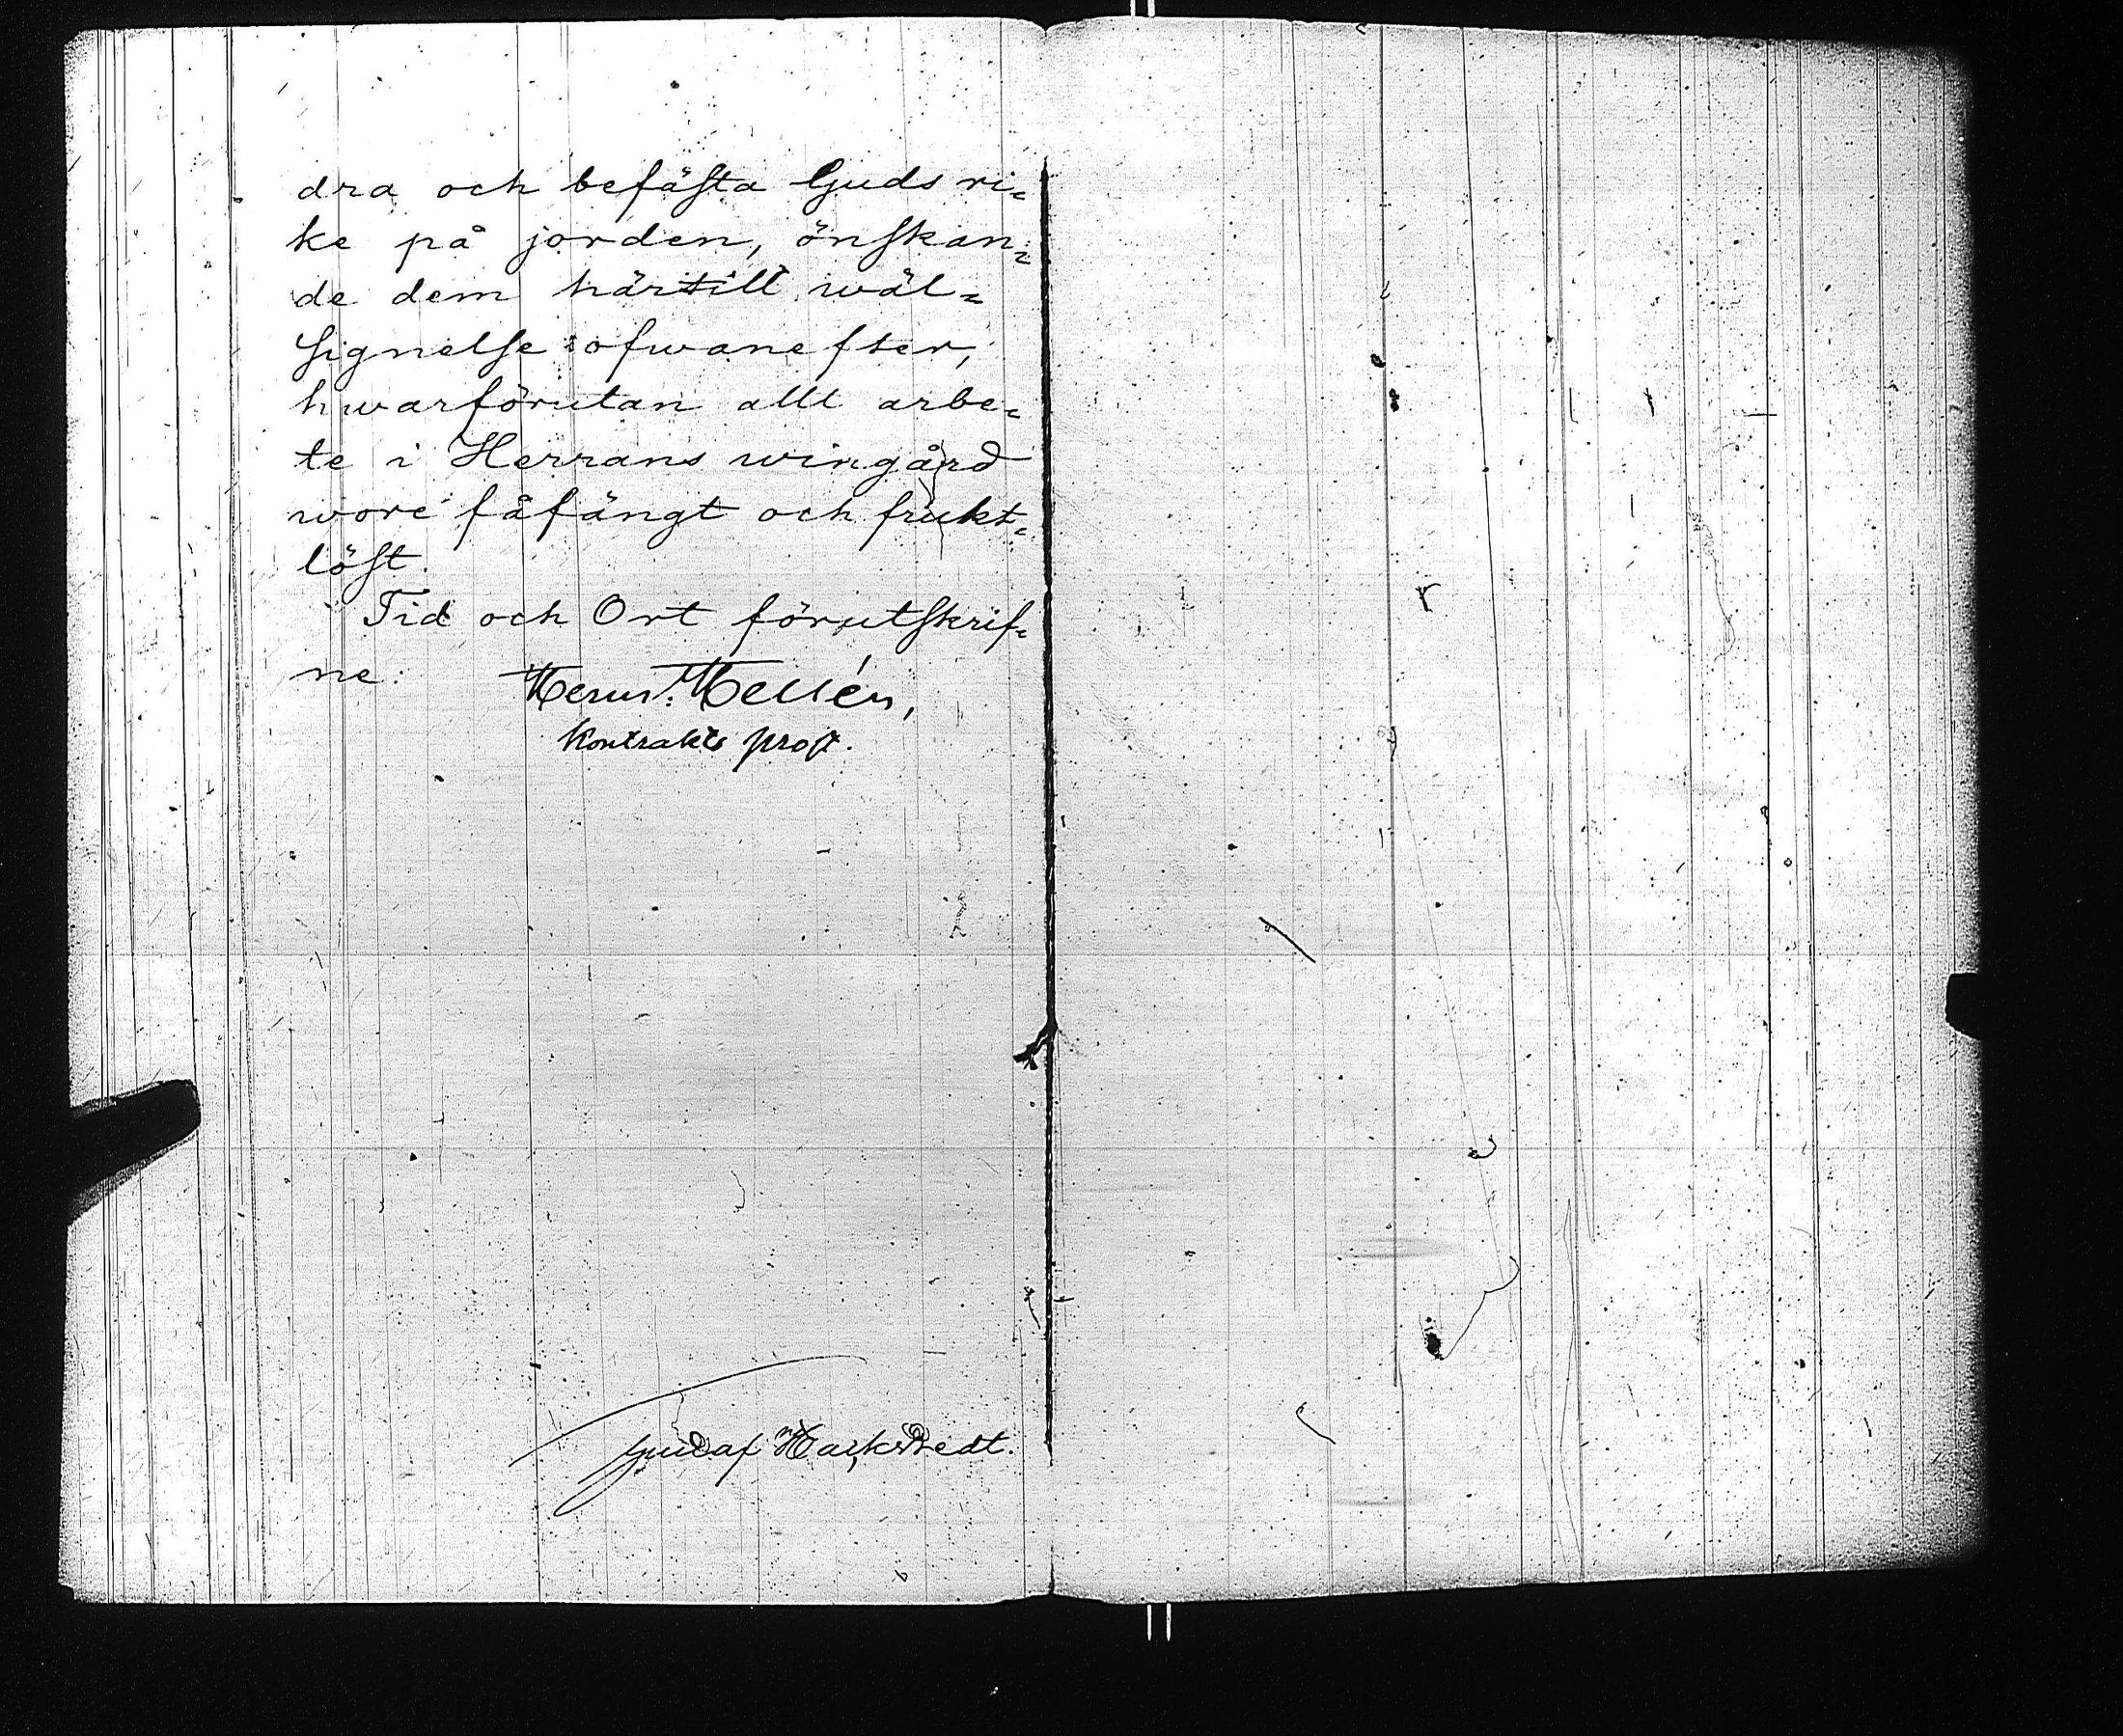 dra och befästa Guds ri-
ke på jorden, önskan-
de dem härtill wäl-
signelse ofwanefter,
hwarförutan allt arbe-
te i Herrans wingård
wore fåfängt och frukt-
löst.
Tid och Ort förutskrif-
ne:
Kontrakts prost.
Gustaf